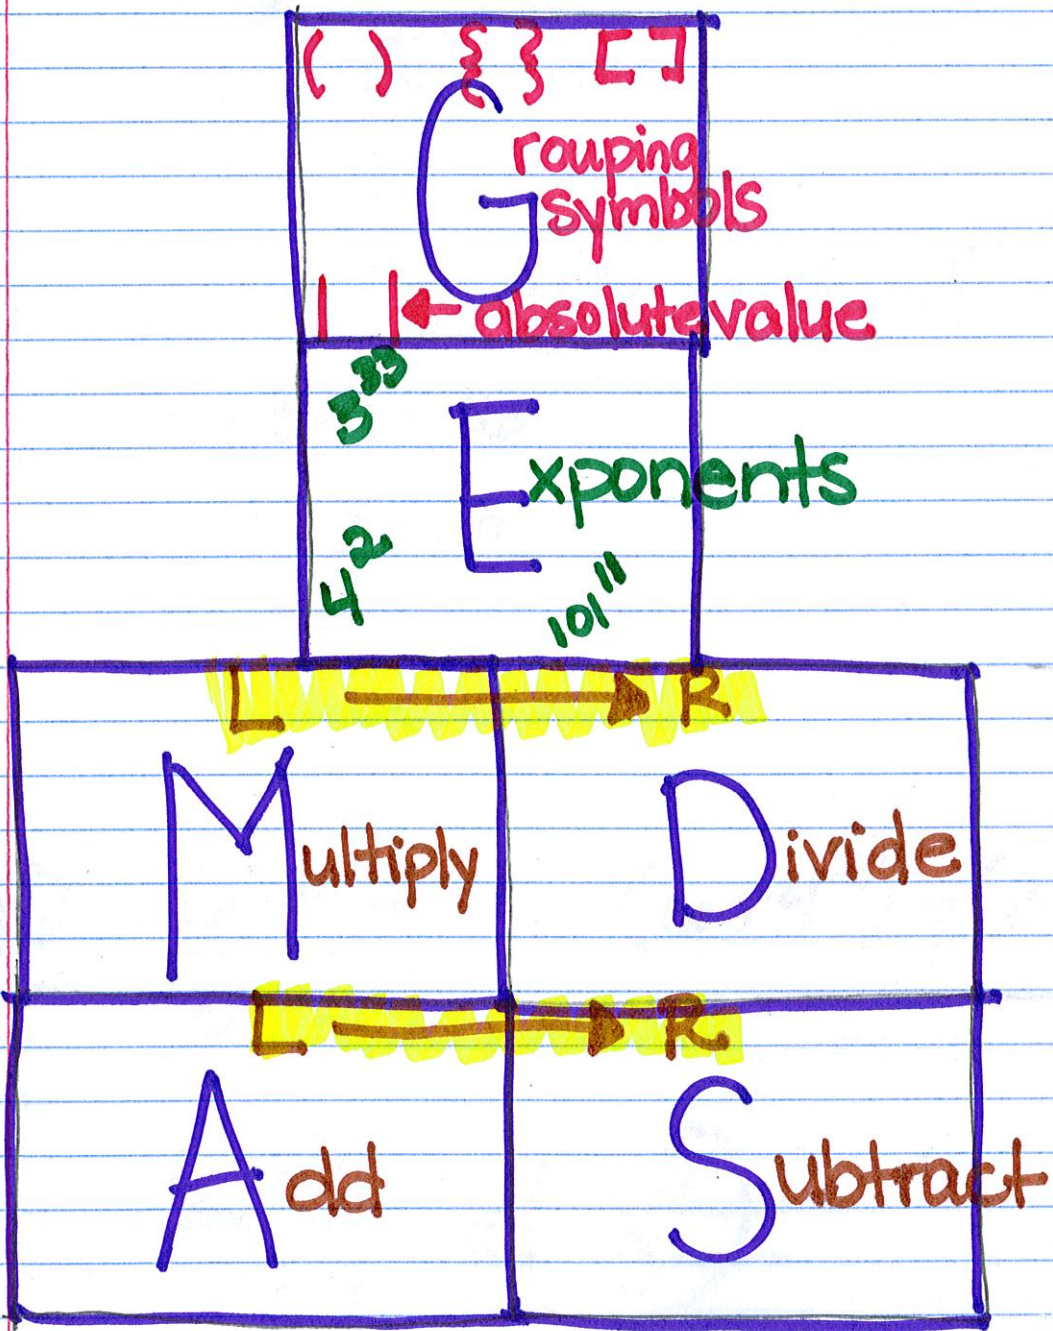 ( ) { } [ ]
Grouping
symbols
| | ← absolute value
3³³
Exponents
4²
101¹¹
L → R
Multiply Divide
L → R
Add Subtract